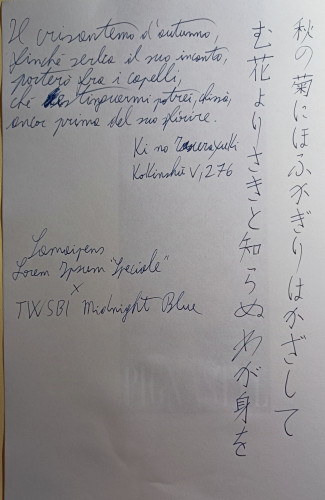 Il crisantemo d'autunno,
finché serba il suo incanto,
porterò fra i capelli,
ché estinguermi potrei, chissà,
ancor prima del suo sfiorire.
Ki no Tsurayuki
Kokinshū V, 276
秋の菊にほふかぎりはかざして
む花よりさきと知らぬわが身を
Lorem Ipsum "Speciale"
x
TWSBI Midnight Blue